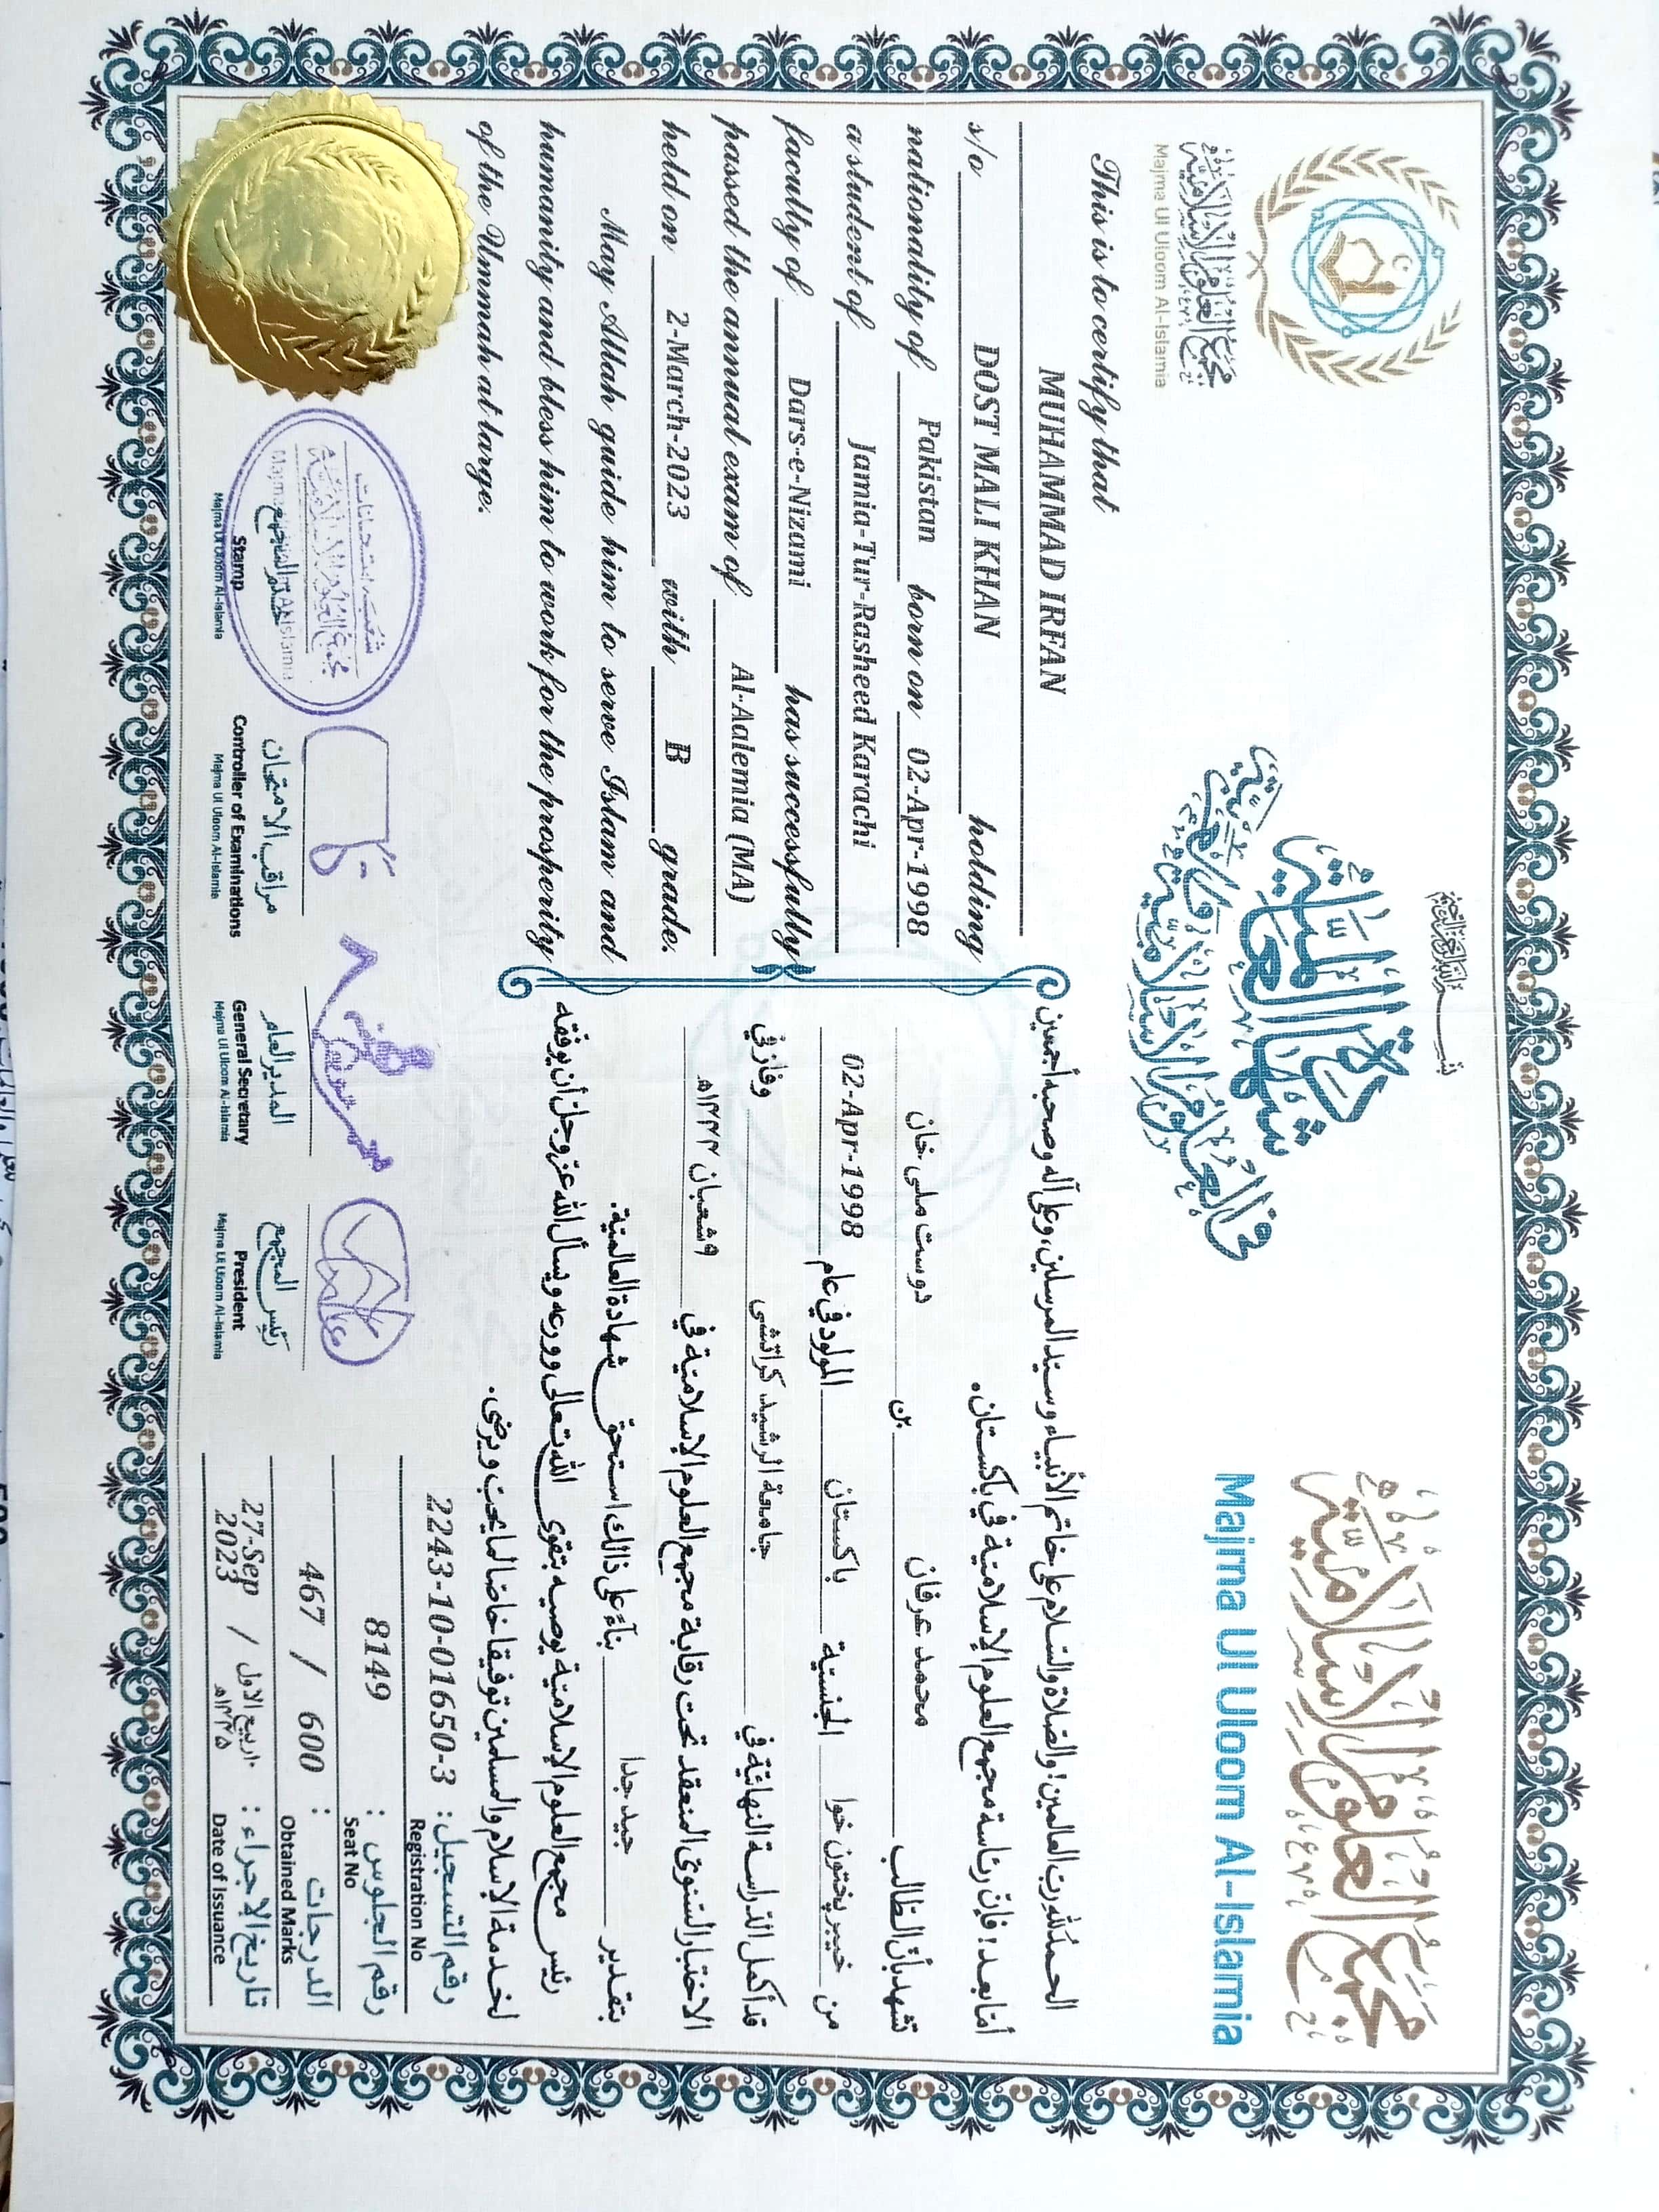 بسم الله الرحمن الرحيم
مجمع العلوم الإسلامية
Majma Ul Uloom Al-Islamia
مجمع العلوم الإسلامية
Majma Ul Uloom Al-Islamia
شهادة العالمية
في العلوم الإسلامية والعربية
This is to certify that
MUHAMMAD IRFAN
s/o DOST MALI KHAN holding
nationality of Pakistan born on 02-Apr-1998
a student of Jamia-Tur-Rasheed Karachi
faculty of Dars-e-Nizami has successfully
passed the annual exam of Al-Aalemia (MA)
held on 2-March-2023 with B grade.
May Allah guide him to serve Islam and
humanity and bless him to work for the prosperity
of the Ummah at large.
الحمد لله رب العالمين! والصلاة والسلام على خاتم الأنبياء وسيد المرسلين، وعلى آله وصحبه أجمعين
أما بعد! فإن رئاسة مجمع العلوم الإسلامية في باكستان.
تشهد بأن الطالب محمد عرفان بن دوست ملی خان
من خيبر پختون خوا الجنسية باكستان المولود في عام 02-Apr-1998
قد أكمل الدراسة النهائية في جامعة الرشيد كراتشى وفاز في
الاختبار السنوي المنعقد تحت رقابة مجمع العلوم الإسلامية في ٩ شعبان ١٤٤٤ھ
بتقدير جيد جدا بناءً على ذالك استحق شهادة العالمية.
رئيس مجمع العلوم الإسلامية يوصيه بتقوى الله تعالى وورعه ويسأل الله عز وجل أن يوفقه
لخدمة الإسلام والمسلمين توفيقا خاصا لما يحب ويرضى.
رقم التسجيل: 2243-10-01650-3
Registration No
رقم الجلوس: 8149
Seat No
الدرجات: 467 / 600
Obtained Marks
تاريخ الإجراء: 27-Sep 2023 / ١٠ ربيع الاول ١٤٤٥ھ
Date of Issuance
شعبہ امتحانات
مجمع العلوم الإسلامية
ختم المجمع
Stamp
Majma Ul Uloom Al-Islamia
مراقب الامتحان
Controller of Examinations
Majma Ul Uloom Al-Islamia
المدير العام
General Secretary
Majma Ul Uloom Al-Islamia
رئيس المجمع
President
Majma Ul Uloom Al-Islamia